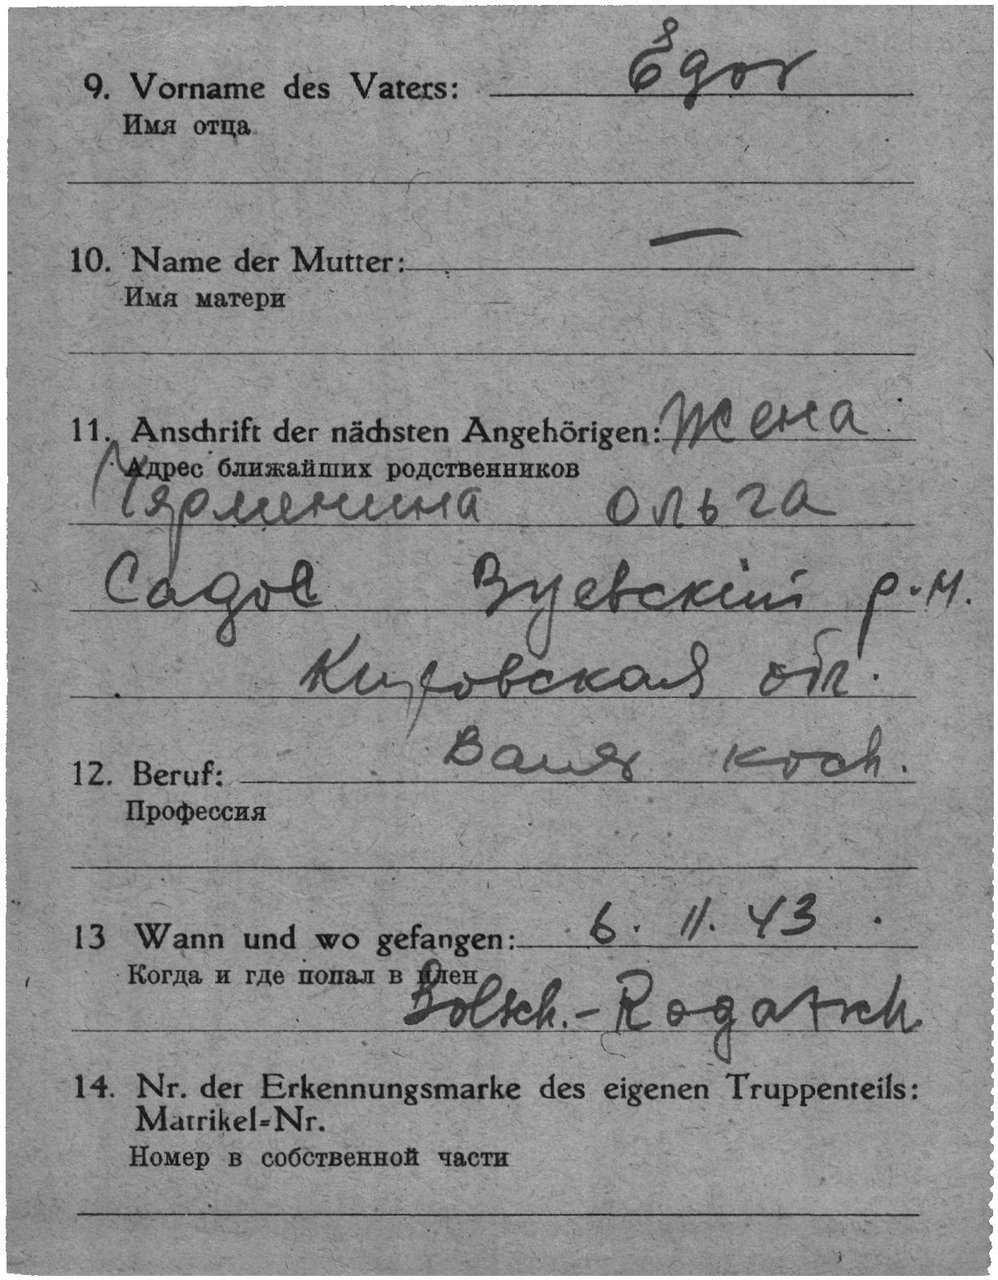 9. Vorname des Vaters: Egor
Имя отца
10. Name der Mutter: —
Имя матери
11. Anschrift der nächsten Angehörigen: Жена
Адрес ближайших родственников
Ольга
Садов Зуевский р.н.
Кировская обл.
12. Beruf: koch.
Профессия
13 Wann und wo gefangen: 6. 11. 43
Когда и где попал в плен
Bolsch.-Rogatsch
14. Nr. der Erkennungsmarke des eigenen Truppenteils:
Matrikel-Nr.
Номер в собственной части